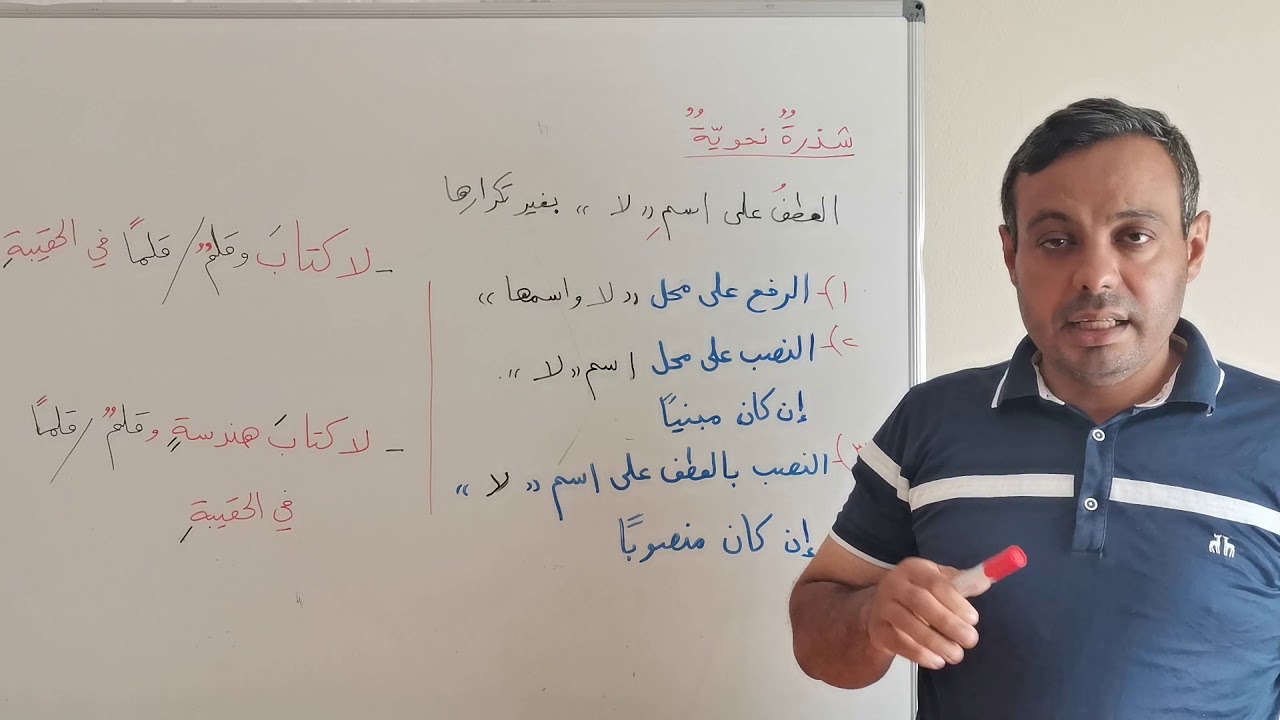 شذرةٌ نحويّةٌ
العطفُ على اسمِ «لا» بغير تكرارها
١)- الرفع على محل «لا واسمها»
٢)- النصب على محل اسم «لا».
إن كان مبنيًا
٣)- النصب بالعطف على اسم «لا»
إن كان منصوبًا
- لا كتابَ وقلمٌ / قلمًا في الحقيبةِ
- لا كتابَ هندسةٍ وقلمٌ / قلمًا
في الحقيبةِ